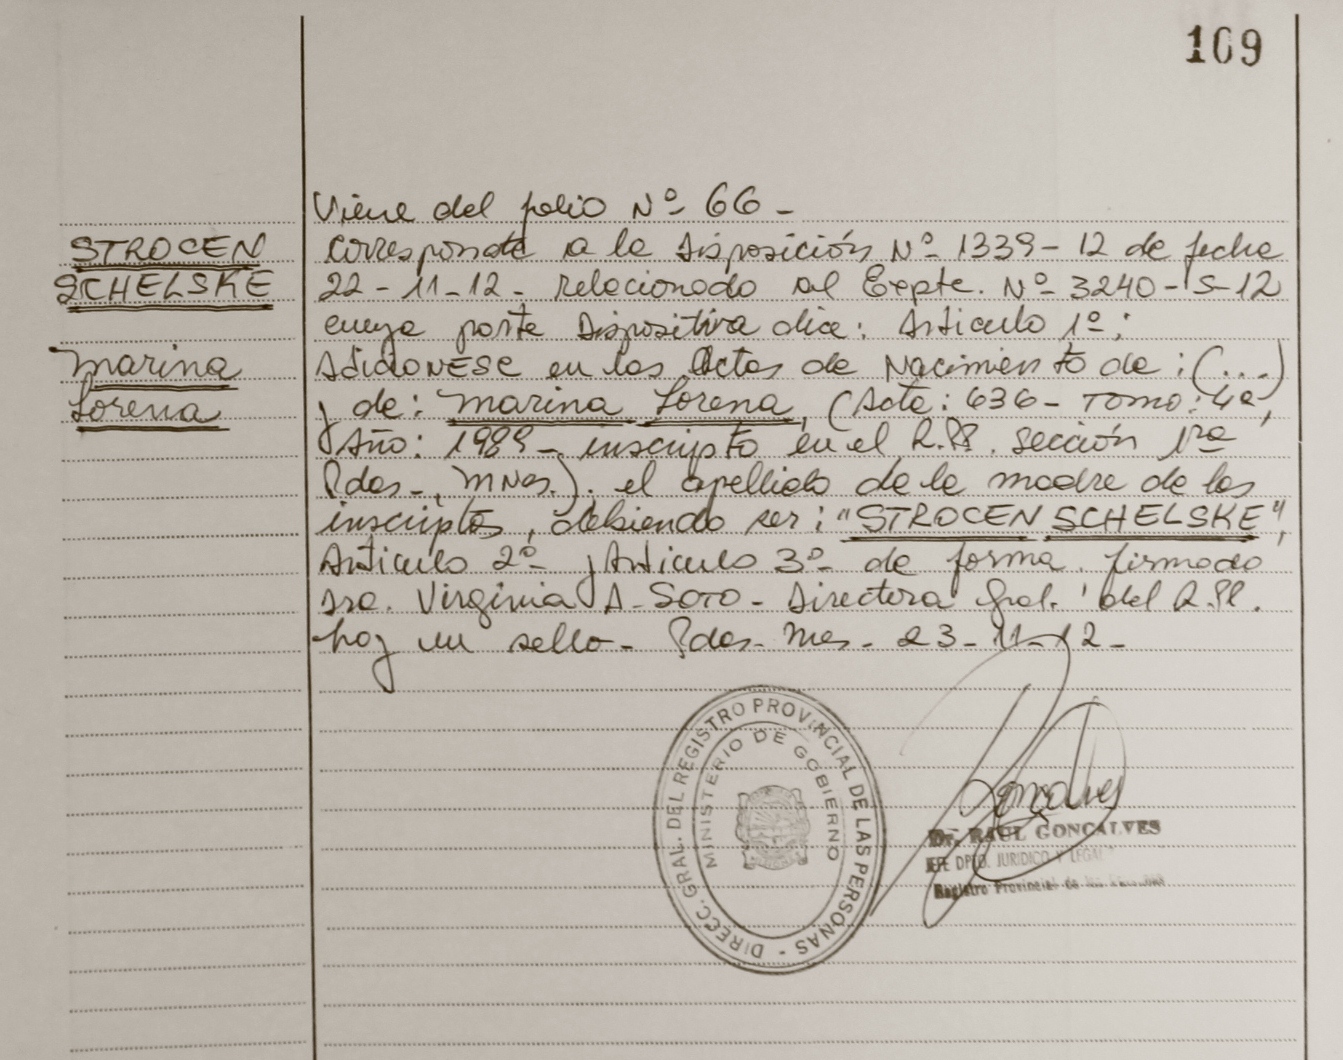 109
Viene del folio Nº 66 -
STROCEN
SCHELSKE
Marina
Lorena
corresponde a la Disposición Nº 1339-12 de fecha
22-11-12- relacionado al Expte. Nº 3240-S-12
cuya parte Dispositiva dice: Articulo 1º:
ADICIONESE en las Actas de Nacimiento de: (...)
y de: Marina Lorena, (Acta: 636- Tomo: 4º,
Año: 1989- inscripto en el R.PP. sección 1ra
Pdas-, Mnes.). el apellido de la madre de los
inscriptos, debiendo ser: "STROCEN SCHELSKE",
Articulo 2º y Articulo 3º de forma. firmado
Dra. Virginia A. Soto - Directora Gral. del R.PP.
hay un sello- Pdas- Mnes- 23-11-12-
DIRECC. GRAL. DEL REGISTRO PROVINCIAL DE LAS PERSONAS -
MINISTERIO DE GOBIERNO
Dr. RAUL GONCALVES
JEFE DPTO. JURIDICO Y LEGAL
Registro Provincial de las Personas